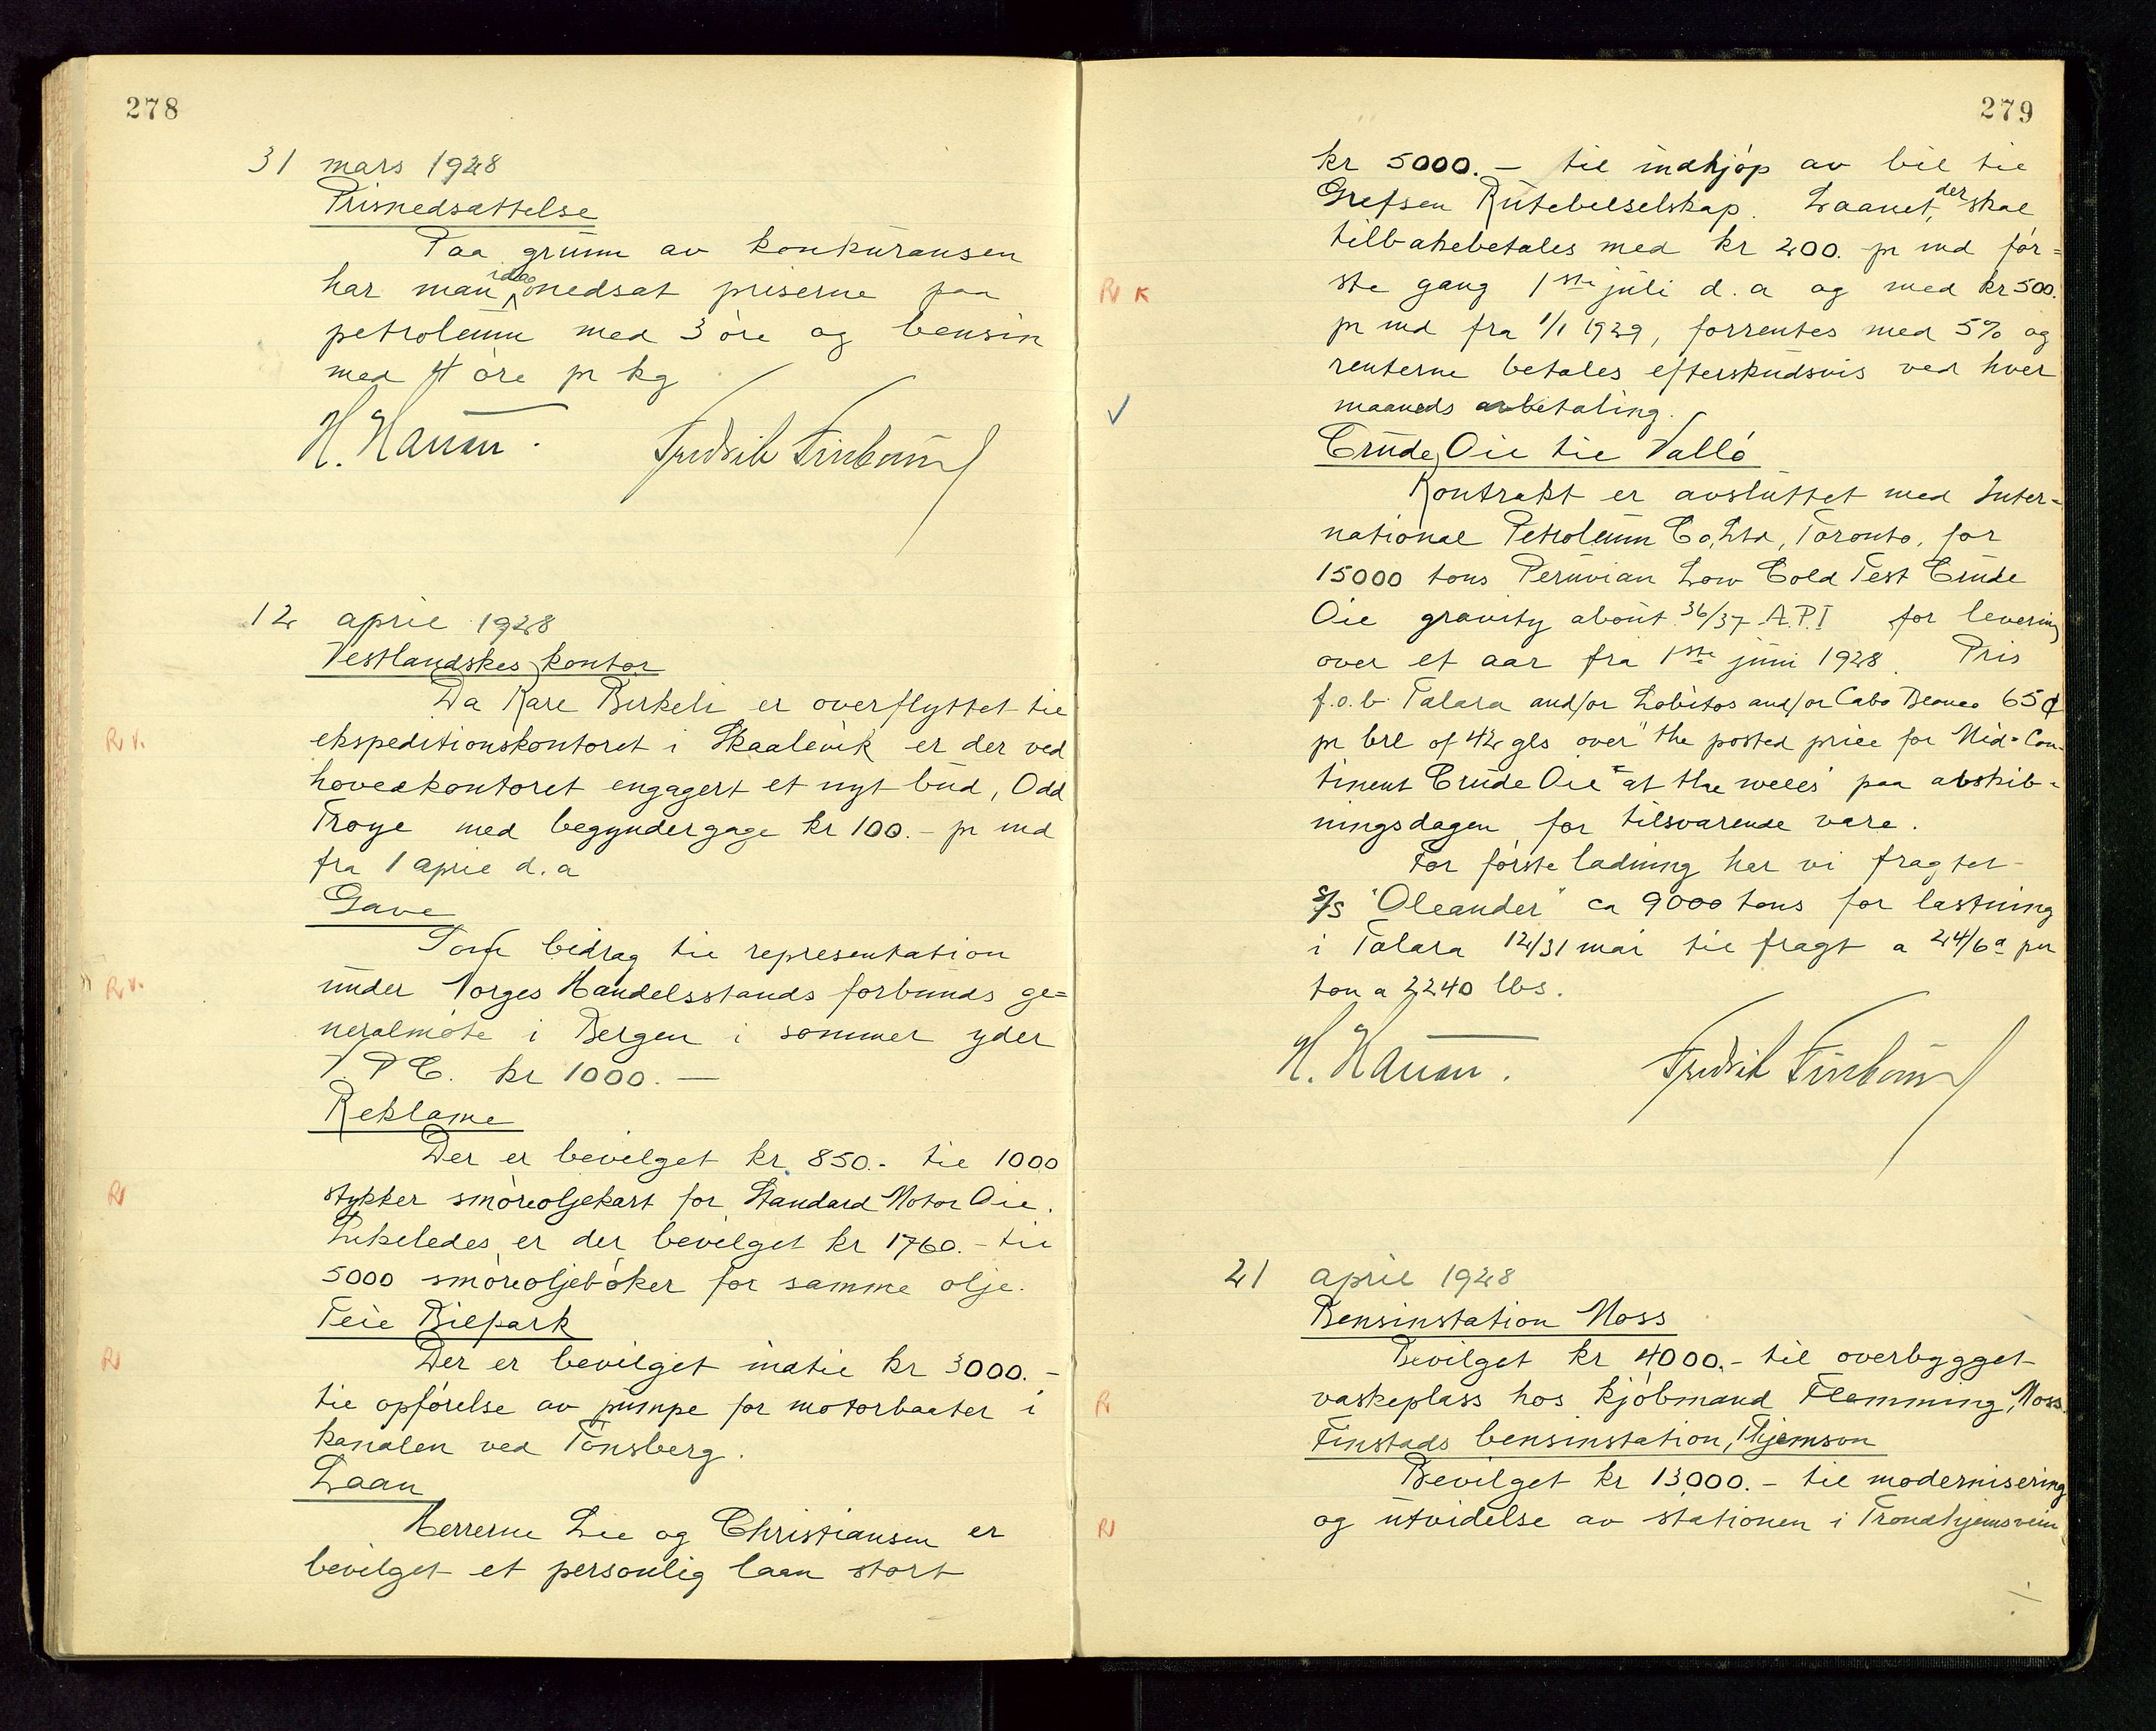 278
31 mars 1928
Prisnedsættelse
Paa grunn av konkuransen
har man idag nedsat priserne paa
petroleum med 3 öre og bensin
med 4 öre pr kg
12 april 1928
Vestlandskes kontor
Da Kare Birkeli er overflyttet til
R.V. ekspeditionskontoret i Skaalevik er der ved
hovedkontoret engagert et nyt bud, Odd
Troye med begyndergage kr 100.- pr md
fra 1 april d.a
Gave
Som bidrag til representation
R.V. under Norges Handelsstands forbunds ge=
neralmöte i Bergen i sommer yder
V.P.C. kr 1000.—
Reklame
Der er bevilget kr 850.- til 1000
stykker smöreoljekart for Standard Motor Oil.
Likeledes er der bevilget kr 1760.- til
5000 smöreoljeböker for samme olje.
Teie Bilpark
Der er bevilget indtil kr 3000.-
til opförelse av pumpe for motorbaater i
kanalen ved Tönsberg.
Laan
Herrerne Lie og Christiansen er
bevilget et personlig laan stort
279
kr 5000.- til indkjöp av bil til
Grefsen Rutebilselskap. Laanet, der skal
tilbakebetales med kr 200.- pr md för=
ste gang 1ste juli d.a og med kr 500.
pr md fra 1/1 1929, forrentes med 5% og
renterne betales efterskudsvis ved hver
maaneds avbetaling.
Crude Oil til Vallö
Kontrakt er avsluttet med Inter=
national Petroleum Co, Ltd, Toronto, for
15000 tons Peruvian Low Cold Test Crude
Oil gravity about 36/37 A.P.I for levering
over et aar fra 1ste juni 1928. Pris
f.o.b. Talara and/or Lobitos and/or Cabo Blanco 65¢
pr brl of 42 gls over "the posted price for Mid=Con-
tinent Crude Oil at the wells" paa avskib=
ningsdagen for tilsvarende vare.
For förste ladning har vi fragtet
S/S "Oleander" ca 9000 tons for lastning
i Talara 12/31 mai til fragt a 24/6d per
ton a 2240 lbs.
21 april 1928
Bensinstation Moss
Bevilget kr 4000.- til overbygget
vaskeplass hos kjöbmand Flemming, Moss.
Finstads bensinstation, Thjemson
Bevilget kr 13000.- til modernisering
og utvidelse av stationen i Trondhjemsvein